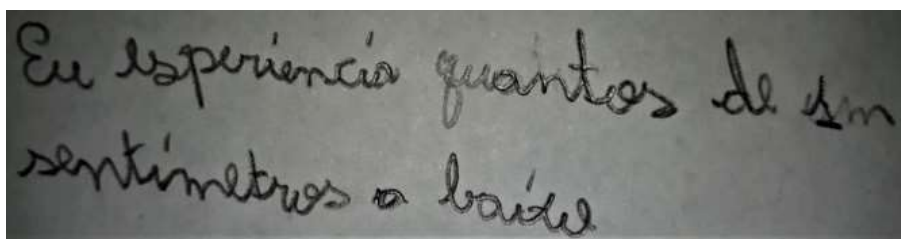 Eu esperiencia quantos de sm
sentimetros a baixo